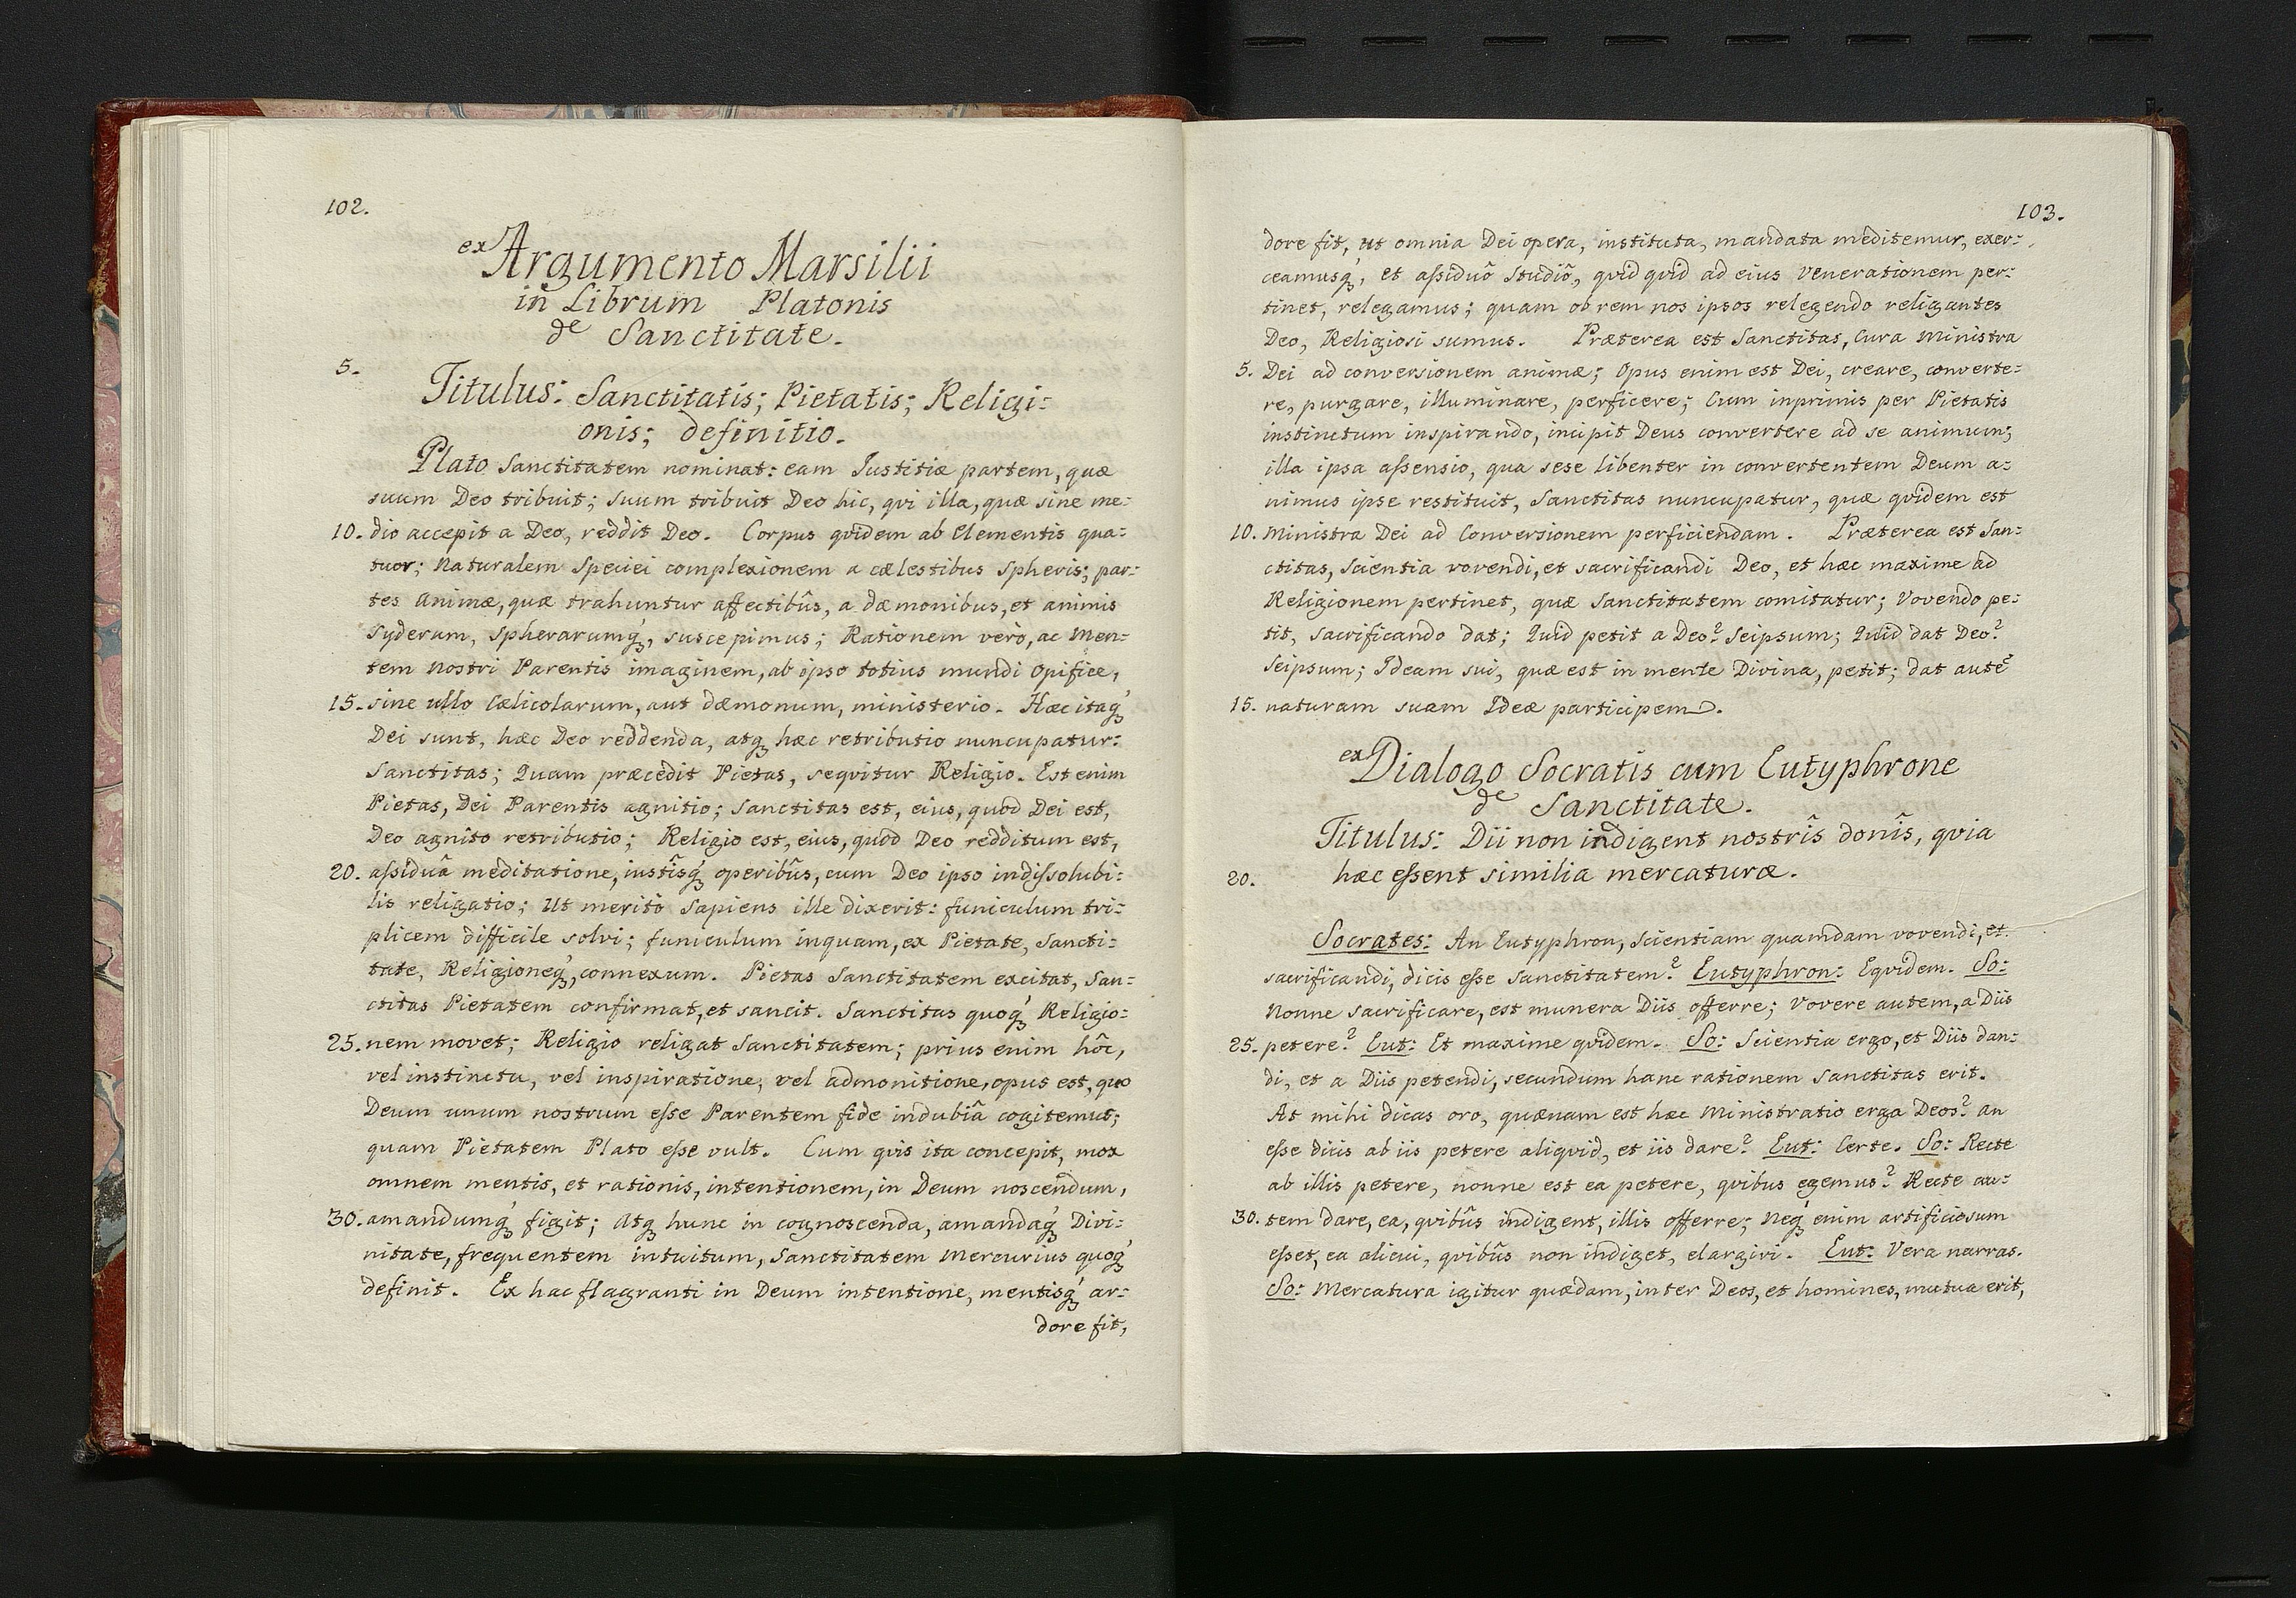 102.
ex Argumento Marsilii
in Librum Platonis
de Sanctitate.
5.
Titulus: Sanctitatis; Pietatis; Religi:
onis; definitio.
Plato Sanctitatem nominat: eam Iustitiæ partem, quæ
suum Deo tribuit; suum tribuit Deo hic, qvi illa, quæ sine me:
10. dio accepit a Deo, reddit Deo. Corpus qvidem ab Elementis qua:
tuor; Naturalem Speciei complexionem a cælestibus Spheris; par:
tes Animæ, quæ trahuntur affectibûs, a dæmonibus, et animis
Syderum, Spherarumq́ʒ, suscepimus; Rationem verò, ac Men:
tem nostri Parentis imaginem, ab ipso totius mundi Opifice,
15. sine ullo Cælicolarum, aut dæmonum, ministerio. Hæc itaq́ʒ
Dei sunt, hæc Deo reddenda, atqʒ hæc retributio nuncupatur:
Sanctitas; Quam præcedit Pietas, seqvitur Religio. Est enim
Pietas, Dei Parentis agnitio; Sanctitas est, eius, quod Dei est,
Deo agnito retributio; Religio est, eius, quod Deo redditum est,
20. aſsiduâ meditatione, iustîsq́ʒ operibûs, cum Deo ipso indiſsolubi:
lis religatio; Ut meritò Sapiens ille dixerit: funiculum tri:
plicem difficile solvi; funiculum inquam, ex Pietate, Sancti:
tate, Religioneq́ʒ, connexum. Pietas Sanctitatem excitat, San:
ctitas Pietatem confirmat, et sancit. Sanctitas quoq́ʒ Religio:
25. nem movet; Religio religat Sanctitatem; prius enim hôc,
vel instinctu, vel inspiratione, vel admonitione, opus est, quo
Deum unum nostrum eſse Parentem fide indubiâ cogitemus;
quam Pietatem Plato eſse vult. Cum qvis ita concepit, mox
omnem mentis, et rationis, intentionem, in Deum noscendum,
30. amandumq́ʒ figit; Atqʒ hunc in cognoscenda, amandaq́ʒ Divi:
nitate, frequentem intuitum, Sanctitatem Mercurius quoq́ʒ
definit. Ex hac flagranti in Deum intentione, mentisq́ʒ ar:
dore fit,
103.
dore fit, ut omnia Dei opera, instituta, mandata meditemur, exer:
ceamusq́ʒ, et aſsiduô Studiô, qvid qvid ad eius Venerationem per:
tinet, relegamus; quam ob rem nos ipsos relegendo religantes
Deo, Religiosi sumus. Præterea est Sanctitas, Cura Ministra
5. Dei ad conversionem animæ; Opus enim est Dei, creare, converte:
re, purgare, illuminare, perficere; Cum inprimis per Pietatis
instinctum inspirando, incipit Deus convertere ad se animum;
illa ipsa aſsensio, qua sese libenter in convertentem Deum a:
nimus ipse restituit, Sanctitas nuncupatur, quæ qvidem est
10. Ministra Dei ad Conversionem perficiendam. Præterea est San:
ctitas, Scientia vovendi, et sacrificandi Deo, et hæc maxime ad
Religionem pertinet, quæ Sanctitatem comitatur; Vovendo pe:
tit, sacrificando dat; Quid petit a Deo? Seipsum; Quid dat Deo?
Seipsum; Ideam sui, quæ est in mente Divina, petit; dat autē
15. naturam suam Ideæ participem.
ex Dialogo Socratis cum Eutyphrone
de Sanctitate.
Titulus: Dii non indigent nostrîs donîs, qvia
20. hæc eſsent similia mercaturæ.
Socrates: An Eutyphron, Scientiam quamdam vovendi, et
sacrificandi, dicis eſse Sanctitatem? Eutyphron: Eqvidem. So:
Nonne sacrificare, est munera Diis offerre; Vovere autem, a Diis
25. petere? Eut: Et maxime qvidem. So: Scientia ergo, et Diis dan:
di, et a Diis petendi, secundum hanc rationem Sanctitas erit.
At mihi dicas oro, quænam est hæc Ministratio erga Deos? an
eſse dicis ab iis petere aliqvid, et iis dare? Eut: Certe. So: Recte
ab illis petere, nonne est ea petere, qvibus egemus? Recte au:
30. tem dare, ea, qvibûs indigent, illis offerre; Neq́ʒ enim artificiosum
eſset, ea alicui, qvibûs non indiget, elargiri. Eut: Vera narras.
So: Mercatura igitur quædam, inter Deos, et homines, mutua erit,